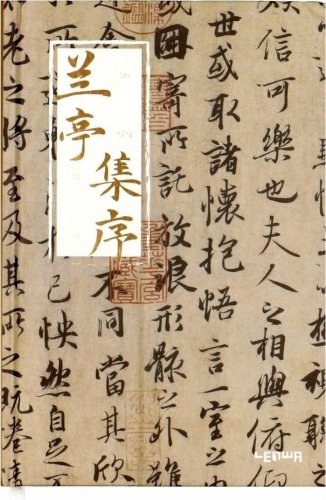 兰亭
集序
信可樂也夫人之相與俯仰
世或取諸懷抱悟言一室之
因寄所託放浪形骸之外雖
不同當其欣
己怏然自足不
老之將至及其所之既惓情
LENWA